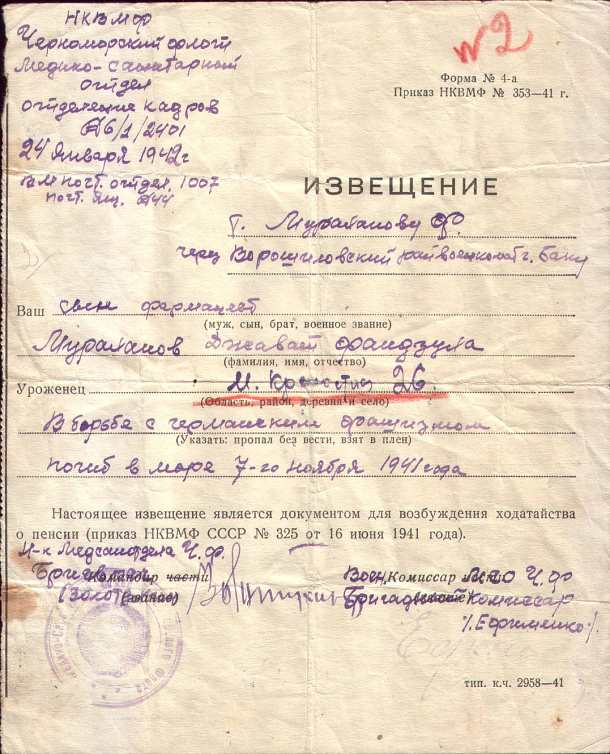 НКВМФ
Черноморский флот
Медико-санитарный
отдел
отделение кадров
№ 2
Форма № 4-а
Приказ НКВМФ № 353—41 г.
6/1/2401
24 января 1942 г
в.м. почт. отдел. 1007
почт. ящ.
ИЗВЕЩЕНИЕ
т. Муратханову Ф.
через Ворошиловский райвоенкомат г. Баку
Ваш сын фармацевт
(муж, сын, брат, военное звание)
Джават
(фамилия, имя, отчество)
Уроженец 26.
(Область, район, деревня и село)
В борьбе с германским фашизмом
(Указать: пропал без вести, взят в плен)
погиб в море 7-го ноября 1941 года
Настоящее извещение является документом для возбуждения ходатайства
о пенсии (приказ НКВМФ СССР № 325 от 16 июня 1941 года).
Н-к Медсанотдела Ч.Ф.
Командир части
(звание)
Воен Комиссар МСО Ч.Ф
Бригадный Комиссар
/.Ефименко./
тип. к.ч. 2958—41